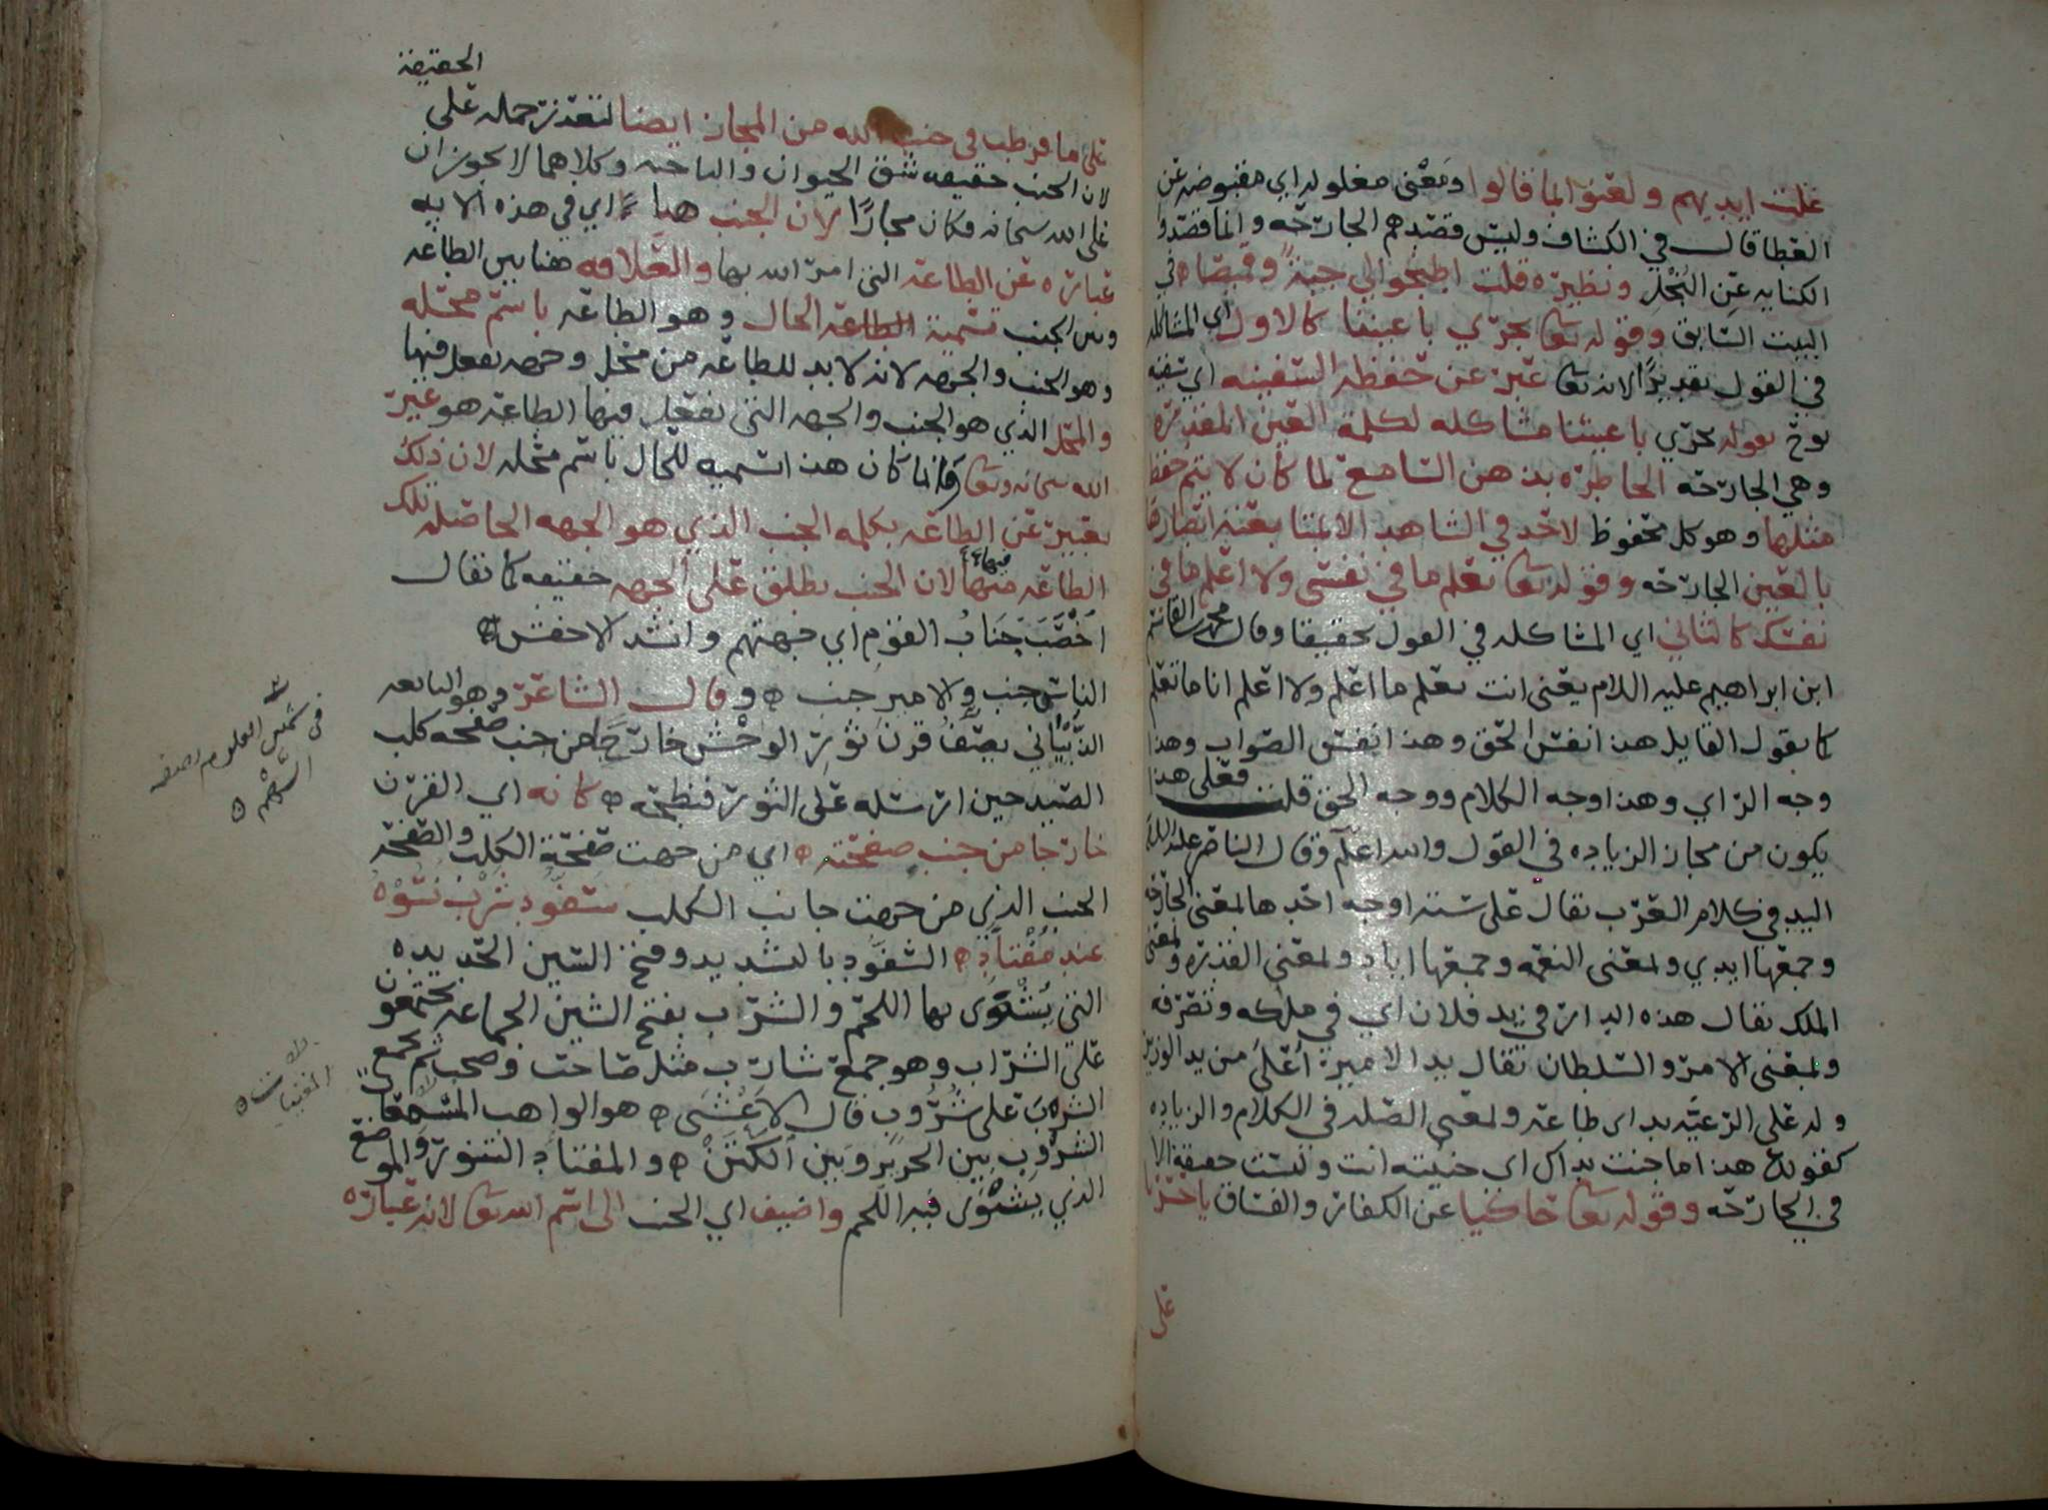 غلت ايديهم ولعنوا بما قالوا ومعنى مغلوله اي مقبوضه عن
العطا قال في الكشاف وليس قصدهم الجارحه وانما قصدوا
الكنايه عن البخل ونظيره قلت اطبخوا لي جبة وقميصا في
البيت السابق وقوله تعا تجري باعيننا كالاول اي المشاكله
في القول تقديرا لانه تعا عبر عن حفظه السفينه اي سفينه
نوح بقوله تجري باعيننا مشاكله لكلمة العين المقدره
وهي الجارحه الخاطره بذهن السامع لما كان لا يتم حفظ
مثلها وهو كل محفوظ لاحد في الشاهد الا بمتابعته ابصارها
بالعين الجارحه وقوله تعا تعلم ما في نفسي ولا اعلم ما في
نفسك كالثاني اي المشاكله في القول تحقيقا وقال محمد بن القاسم
ابن ابراهيم عليه السلام يعني انت تعلم ما اعلم ولا اعلم انا ما تعلم
كما يقول القايل هذا نفس الحق وهذا نفس الصواب وهذا
وجه الراي وهذا وجه الكلام ووجه الحق قلت فعلى هذا
يكون من مجاز الزياده في القول والله اعلم وقال الناصر عليه السلم
اليد في كلام العرب تقال على ستة اوجه احدها بمعنى الجارحه
وجمعها ايدي وبمعنى النعمه وجمعها اياد وبمعنى القدره وبمعنى
الملك تقال هذه الدار في يد فلان اي في ملكه وتصرفه
وبمعنى الامر والسلطان تقال يد الامير اعلى من يد الوزير
وله على الرعيه يد اي طاعه وبمعنى الصله في الكلام والزياده
كقولك هذا ما جنت يداك اي جنيته انت وليست حقيقة الا
في الجارحه وقوله تعا حاكيا عن الكفار والفساق يا حسرتا
على
الحقيقة
على ما فرطت في جنب الله من المجاز ايضا لتعذر حمله على
لان الجنب حقيقه شق الحيوان والناحيه وكلاهما لا يجوز ان
على الله سبحانه فكان مجازا لان الجنب هنا اي في هذه الايه
عباره عن الطاعه التي امر الله بها والعلاقه هنا بين الطاعه
وبين الجنب تسمية الطاعه الحال وهو الطاعه باسم محله
وهو الجنب والجهه لانه لا بد للطاعه من محل وجهه يفعل فيها
والمحل الذي هو الجنب والجهه التي تفعل فيها الطاعه هو غير
الله سبحانه وتعا وانما كان هذا تسميه للحال باسم محله لان ذلك
تعبير عن الطاعه بكلمه الجنب الذي هو الجهه الحاصله تلك
الطاعه فيها لان الجنب يطلق على الجهه حقيقه كما تقال
اخصب جناب القوم اي جهتهم وانشد الاخفش
الناس جنب والامير جنب وقال الشاعر وهو النابغه
الذبياني يصف قرن ثور الوحش خارجا من جنب صفحه كلب
الصيد حين ارسله على الثور فنطحه كانه اي القرن
خارجا من جنب صفحته اي من جهت صفحة الكلب والصفحه
الجنب الذي من جهت جانب الكلب سفود شرب نسوه
عند مفتاد السفود بالتشديد وفتح السين الحديده
التي يشتوى بها اللحم والشرب بفتح الشين الجماعه يجتمعون
على الشراب وهو جمع شارب مثل صاحب وصحب ثم يجمع
الشرب على شروب قال الاعشى هو الواهب المسمعات
الشروب بين الحرير وبين الكتن والمفتاد التنور والموضع
الذي يشتوى فيه اللحم واضيف اي الجنب الى اسم الله تعا لانه عباره
من شمس العلوم
المغنيات